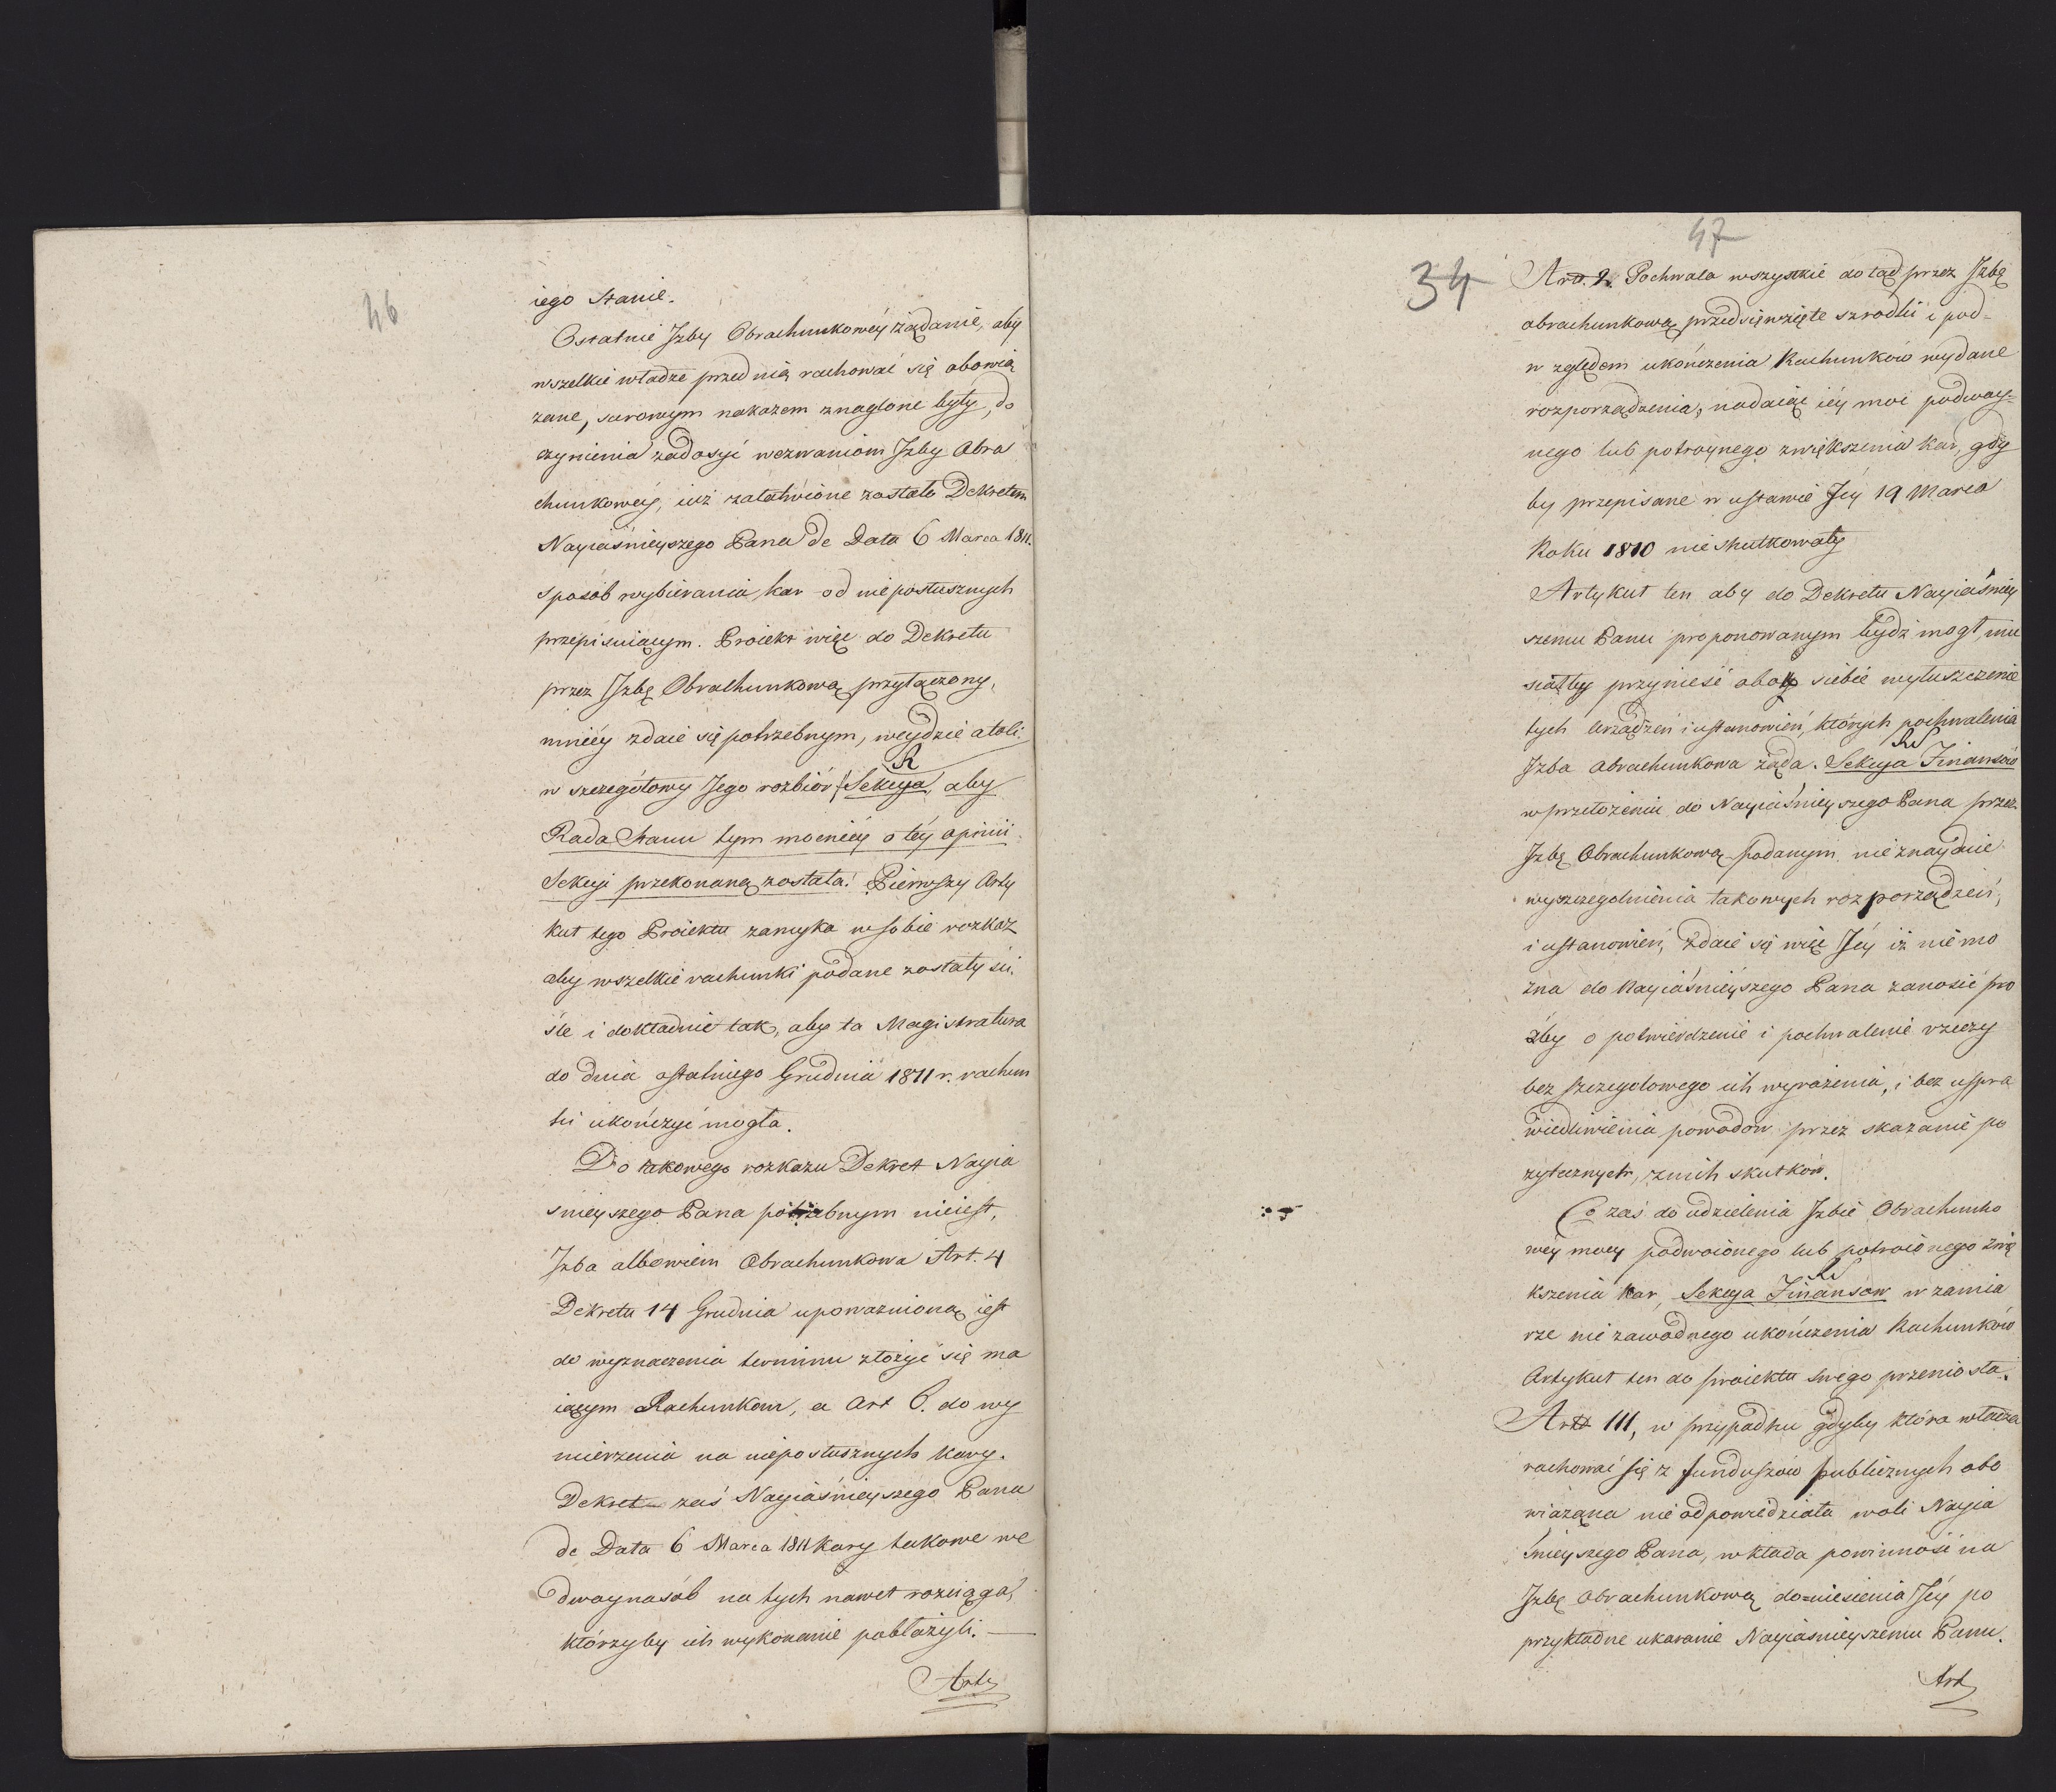 46
iego Stanie.
Ostatnie Jzby Obrachunkowéy żądanie, aby
wszelkie władze przed nią rachować się obowią
zane, surowym nakazem znaglone były, do
czynienia zadosyć wezwaniom Jzby Obra
chunkowéy, iuż załatwione zostało Dekretem
Nayiaśnieyszego Pana de Data 6 Marca 1811.
sposób wybierania kar od nieposłusznych
przepisuiącym. Proiekt więc do Dekretu
przez Jzbę Obrachunkową przyłączony,
mniéy zdaie się potrzebnym, weydzie atoli
w szczegółowy Jego rozbiór Sekcya, aby
Rada Stanu tym mocniéy o téy opinii
Sekcyi przekonaną została. Pierwszy Arty
kuł tego Proiektu zamyka w sobie rozkaz
aby wszelkie rachunki podane zostały ści
śle i dokładnie tak, aby ta Magistratura
do dnia ostatniego Grudnia 1811 r. rachun
ki ukończyć mogła.
Do takowego rozkazu Dekret Nayia
śnieyszego Pana potrzebnym nieiest,
Jzba albowiem Obrachunkowa Art. 4
Dekretu 14 Grudnia upoważnioną iest
do wyznaczenia terminu złożyć się ma
iącym Rachunkom, a Art 6. do wy
mierzenia na nieposłusznych kary.
Dekret zaś Nayiaśnieyszego Pana
de Data 6 Marca 1811 kary takowe we
dwoynasób na tych nawet rozciąga,
którzyby ich wykonanie pobłażyli. —
Arty
47
34
Art. 2. Pochwala wszystkie do tąd przez Jzbę
obrachunkową przedsięwzięte szrodki i pod-
w zględem ukończenia Rachunków wydane
rozporządzenia, nadaiąc iéy moc podwoy-
nego lub potroynego zwiększenia kar, gdy
by przepisane w ustawie Jéy 19 Marca
Roku 1810 nie skutkowały
Artykuł ten aby do Dekretu Nayiaśniey
szemu Panu proponowanym bydź mogł, mu
siałby przynieść obok siebie wyłuszczenie
tych Urządzeń i ustanowień, których pochwalenia
Jzba Obrachunkowa żąda. Sekcya Finansów
w przełożeniu do Nayiaśnieyszego Pana przez
Jzbę Obrachunkową podanym, nie znayduie
wyszczegolnienia takowych rozporządzeń,
i ustanowień, zdaie się więc Jéy iż nie mo
żna do Nayiaśnieyszego Pana zanosić pro
źby o potwierdzenie i pochwalenie rzeczy
bez szczegolowego ich wyrażenia, i bez uspra
wiedliwienia powodow przez skazanie po
żytecznych, z nich skutków.
Co zaś do udzielenia Jzbie Obrachunko
wéy mocy podwoionego lub potroionego zwię
kszenia kar, Sekcya Finansow w zamia
rze nie zawodnego ukończenia Rachunków
Artykuł ten do proiektu swego przeniosła.
Art III, w przypadku gdyby która władza
rachować się z funduszów publicznych obo
wiązana nie odpowiedziała woli Nayia
śnieyszego Pana, wkłada powinność na
Jzbę Obrachunkową doniesienia Jéy po
przykładne ukaranie Nayiaśnieyszemu Panu.
Art